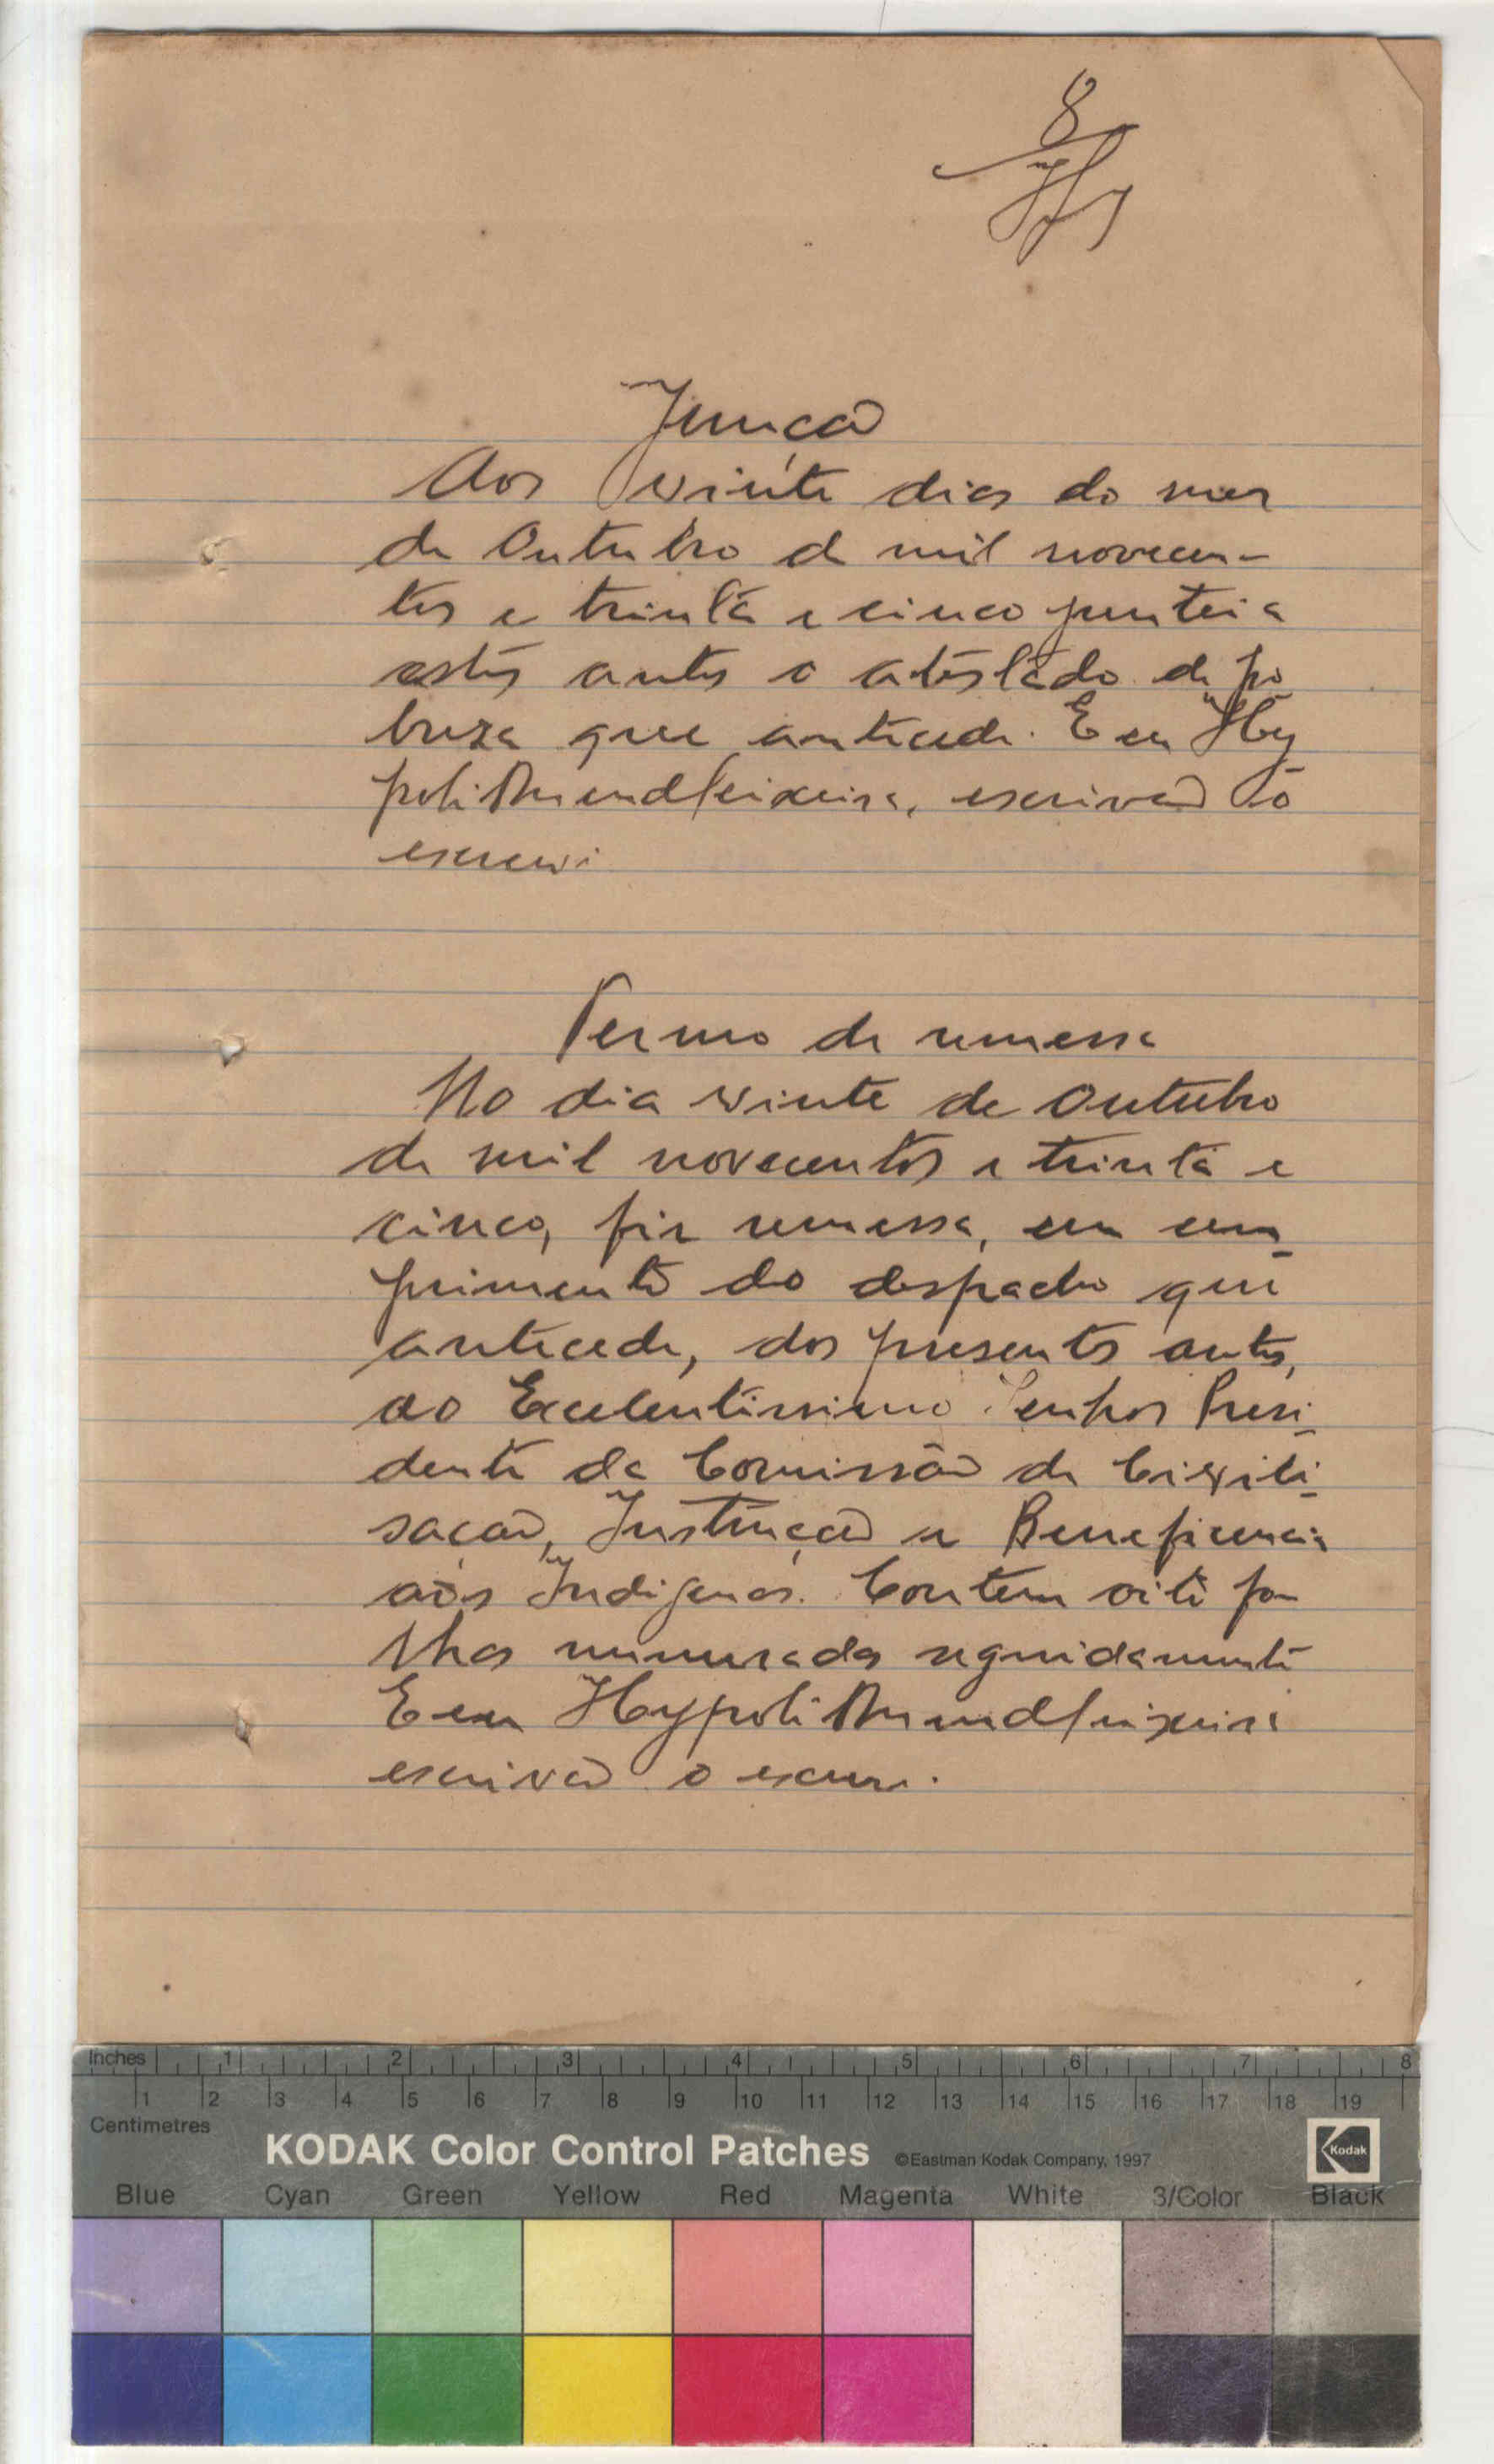 8
Junção
Aos vinte dias do mez
de Outubro de mil novecen-
tos e trinta e cinco juntei a
estes autos o atestado de po
breza que antecede. E eu Hy
polit Mendes Teixeira, escrivão o
escrevi
Termo de remessa
No dia vinte de Outubro
de mil novecentos e trinta e
cinco, fiz remessa, em cum-
primento do despacho que
antecede, dos presentes autos,
ao Excelentissimo Senhor Presi-
dente da Comissão de Civili-
sação, Instrução e Beneficencia
aos Indigenas. Contem oito fo-
lhas numeradas seguidamente
E eu Hypolit Mendes Teixeira
escrivão o escrevi.
Inches 1 2 3 4 5 6 7 8
1 2 3 4 5 6 7 8 9 10 11 12 13 14 15 16 17 18 19
Centimetres
KODAK Color Control Patches ©Eastman Kodak Company, 1997 Kodak
Blue Cyan Green Yellow Red Magenta White 3/Color Black